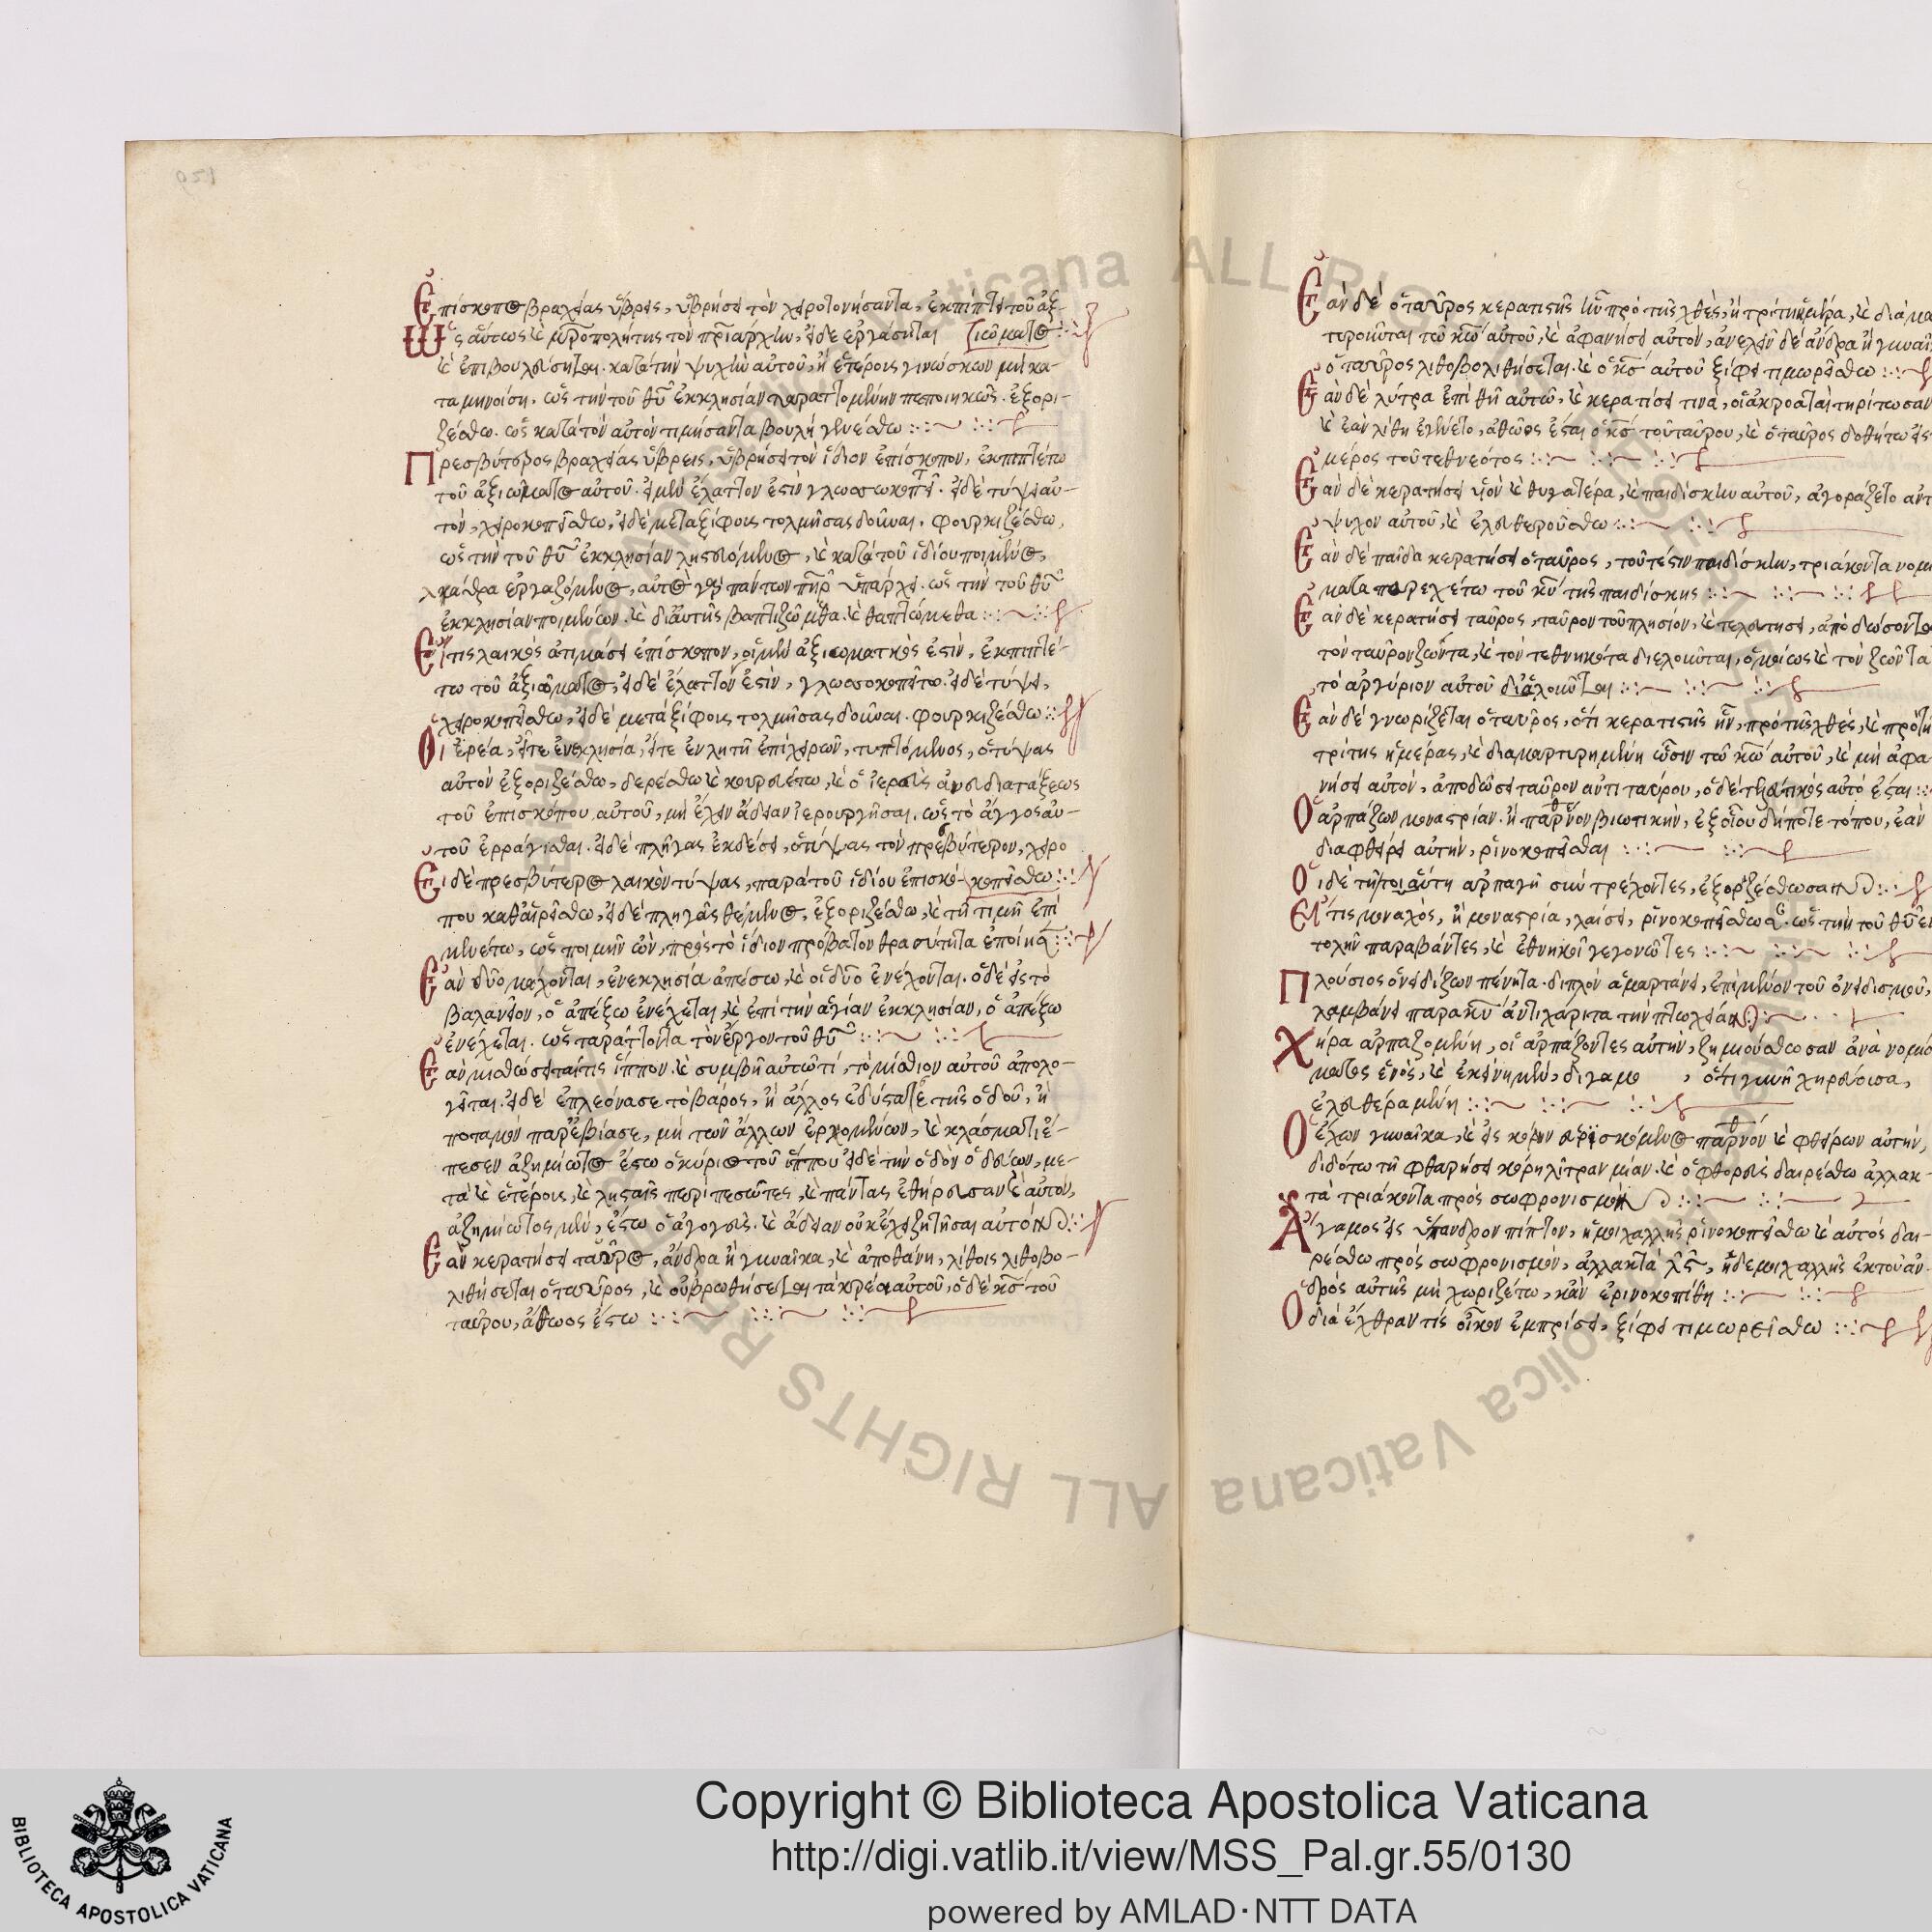 Ἐπίσκοπος βραχείας ὕβρεις, ὑβρήσει τὸν χειροτονήσαντα, ἐκπίπτει τοῦ ἀξ-
Ὡς αὔτως καὶ μητροπολήτης τὸν πριάρχην, εἰδε εργάσηται ιώματος
καὶ ἐπιβουλεύσηται. κατὰ τὴν ψυχὴν αὐτοῦ, ἢ ἑτέροις γινώσκων μὴ κα-
ταμηνοίση. ὡς τὴν τοῦ θῦ ἐκκλησίαν πεποιηκῶς. ἐξορι-
ζέσθω. ὡς κατὰ τὸν αὐτὸν τιμήσαντα βουλὴ γενέσθω
Πρεσβύτερος βραχείας ὕβρεις, ὑβρήσει τὸν ἴδιον ἐπίσκοπον, ἐκπιπτέτω
τοῦ ἀξιώματος αὐτοῦ. εἰ μὲν ἐλαττον ἐστιν γλωσσωκοπεῖτ. εἰ δὲ τύψει αὐ-
τόν, χειροκοπείσθω, εἰ δὲ μεταξίφοις τολμήσας δοῦναι, φουρκιζέσθω,
ὡς τὴν τοῦ θῦ ἐκκλησίαν ληστευόμενος, καὶ κατὰ τοῦ ἰδίου ποιμένος,
εργαζόμενος, πάντων πηρ ὑπάρχει. ὡς τὴν τοῦ θῦ
ἐκκλησίαν ποιμένων. καὶ δι' αὐτῆς βαπτιζώμεθα. καὶ θαπτώμεθα
Εἴ τις λαικὸς ἀτιμάσει ἐπίσκοπον, οἱ μὲν ἀξιωματικὸς ἐστίν, ἐκπιπτέ-
τω τοῦ ἀξιώματος, εἰ δὲ ἐλαττον ἐστίν, γλωσοκοπείτω. εἰ δὲ τύψει,
χειροκοπείσθω, εἰ δὲ μετὰ ξίφοις τολμήσας δοῦναι. φουρκιζέσθω
Οἱ ἐρέα, εἴτε ἐν εκλησία, εἴτε ἐν λητῇ ἐπιχειρῶν, τυπτόμενος, ὁ τύψας
αὐτὸν ἐξοριζέσθω, δερέσθω καὶ κουρευέτω, καὶ ὁ ἱερεὺς ἀνευ διατάξεως
τοῦ ἐπισκόπου αὐτοῦ, μὴ ἔχειν ἄδειαν ἱερουργῆσαι. ὡς τὸ ἄγγος αὐ-
τοῦ ἐρράγισθαι. εἰ δὲ πλήγας ἐκδέσει, ὁ τύψας τὸν πρεσβύτερον, χειρο
Εἰ δὲ πρεσβύτερος λαικὸν τύψας, παρὰ τοῦ ἰδίου ἐπισκό- κοπείσθω
που καθαιρείσθω, εἰ δὲ πληγὰς θέμενος, ἐξοριζέσθω, καὶ τῇ τιμῇ ἐπι
μενέτω, ὡς ποιμὴν ὢν, πρὸς τὸ ἴδιον πρόβατον θρασύτητα ἐποίησ
Ἐὰν δύο μάχονται, ἐν εκλησία ἀπέστω, καὶ οἱ δύο ἐνέχονται. ὁ δὲ εἰς τὸ
βαλανεῖον, ὁ ἀπέξω ἐνέχεται, καὶ ἐπὶ τὴν ἁγίαν ἐκκλησίαν, ὁ ἀπέξω
ἐνέχεται. ὡς ταράττοντα τὸν ἔργον τοῦ θῦ
Ἐὰν μισθώσεταί τις ἵππον. καὶ συμβῇ αὐτῶ τί, τὸ μίσθιον αὐτοῦ ἀπολο-
γεῖται. εἰ δὲ ἐπλεόνασε τὸ βάρος, ἢ ἄλλος τῆς ὁδοῦ, ἢ
ποταμὸν παρεβίασε, μὴ τῶν ἄλλων ἐρχομένων, καὶ κλάσματι ἔ-
πεσεν ἀζημίωτος ἔστω ὁ κύριος τοῦ ἵππου εἰ δὲ τὴν ὁδὸν ὁδεύων, με-
τὰ καὶ ἑτέροις, καὶ λησταῖς περιπεσῶτες, καὶ πάντας ἐθήρευσαν καὶ αὐτὸν,
ἀζημίωτος μὲν, ἔστω ὁ ἀγογεὺς. καὶ ἄδειαν οὐκ ἔχει ζητῆσαι αὐτόν
Ἐὰν κερατήσει ταῦρος, ἄνδρα ἢ γυναῖκα, καὶ ἀποθάνη, λίθοις λιθοβο-
λιθήσεται ὁ ταῦρος, καὶ οὐ βρωθήσεται τὰ κρέα αὐτοῦ, ὁ δὲ κς τοῦ
ταύρου, ἀθωος ἔστω
Ἐὰν δὲ ὁ ταῦρος κερατιστὴς ἦν πρὸ τῆς χθὲς, ἢ τρίτην ἡμέρα, καὶ διαμα
τυροῦται τῶ κῶ αὐτοῦ, καὶ ἀφανήσει αὐτόν, ἀνελεῖν δὲ ἄνδρα ἢ γυναῖ
ὁ ταῦρος λιθοβολιθήσεται. καὶ ὁ κς αὐτοῦ ξίφει τιμωρείσθω
Ἐὰν δὲ λύτρα ἐπιθῇ αὐτῶ, καὶ κερατίσει τινὰ, οἱ ἀκροαταὶ τηρίτωσαν
καὶ ἐὰν λίθη ἐγένετο, ἀθῶος ἔσται ὁ κς τοῦ ταύρου, καὶ ὁ ταῦρος δοθήτω εἰς
μέρος τοῦ τεθνεότος
Ἐὰν δὲ κερατήσει υἱὸν καὶ θυγατέρα, καὶ παιδίσκην αὐτοῦ, ἀγοραζέτο ἀντ
ψυχον αὐτοῦ, καὶ ἐλευθερούσθω
Ἐὰν δὲ παῖδα κερατήσει ὁ ταῦρος, τοῦτέστιν παιδίσκην, τριάκοντα νομι
ματα παρεχέτω τοῦ κῦ τῆς παιδίσκης
Ἐὰν δὲ κερατήσει ταῦρος, ταῦρον τοῦ πλησίον, καὶ τελευτήσει, ἀποδώσονται
τὸν ταῦρον ζῶντα, καὶ τὸν τεθνηκότα διελοῦνται, ὁμοίως καὶ τὸν ζῶντα
τὸ ἀργύριον αὐτοῦ διαλοιοῦται
Ἐὰν δὲ γνωρίζεται ὁ ταῦρος, ὅτι κερατιστὴς ἦν, πρὸ τῆς χθὲς, καὶ πρὸ τῆ
τρίτης ἡμέρας, καὶ διαμαρτυρημένη ὦσιν τῶ κῶ αὐτοῦ, καὶ μὴ ἀφα
νήσει αὐτόν, ἀποδώσει ταῦρον ἀντι ταύρου, ὁ δὲ αὐτὸ ἔσται
Ὁ ἁρπάζων μοναστρίαν. ἢ παρθένον βιωτικὴν, ἐξ οἵου δήποτε τόπου, ἐὰν
διαφθείρει αὐτὴν, ῥινοκοπείσθαι
Οἱ δὲ τῆ τοιαύτη ἁρπαγῆ συν τρέχοντες, ἐξοριζέσθωσαν
Εἴ τις μοναχὸς, ἢ μοναστρία, ῥινοκοπείσθωσ. ὡς τὴν τοῦ θῦ ἐ
τολὴν παραβάντες, καὶ ἐθνηκοὶ γεγονῶτες
Πλούσιος ὀνειδίζων πένητα. διπλὸν ἁμαρτάνει, ἐπὶ μὲν τοῦ ὀνειδισμοῦ,
λαμβάνει παρα κῦ ἀντιχάριτα τὴν πτωχείαν
Χήρα ἁρπαζομένη, οἱ ἁρπάζοντες αὐτὴν, ζημιούσθωσαν ἀνὰ νομίσ
ματος ἑνὸς, καὶ ἐκείνη μὲν, διγαμο , ὅτι γυνὴ χηρεύουσα,
ἐλευθέρα μένη
Ὁ ἔχων γυναῖκα, καὶ εἰς κόρην εὑρισκόμενος παρθένον καὶ φθείρων αὐτὴν,
διδότω τῇ φθαρήσει κόρη λίτραν μίαν. καὶ ὁ φθορεὺς δαιρέσθω ἀλλακ-
τὰ τριάκοντα πρὸς σωφρονισμὸν
Ἄγαμος εἰς ὕπανδρον πίπτον, ἡ μοιχαλλὴς ῥινοκοπείσθω καὶ αὐτὸς δαι-
ρέσθω πρὸς σωφρονισμόν, ἀλλακτὰ λς, ἡ δε μοιχαλλὴς ἐκ τοῦ ἀν-
δρὸς αὐτῆς μὴ χωριζέτω, κἂν ἐρινοκοπίθη
Ὁ διὰ ἔχθραν τὶς οἶκον ἐμπρίσει, ξίφει τιμωρείσθω
Copyright © Biblioteca Apostolica Vaticana
http://digi.vatlib.it/view/MSS_Pal.gr.55/0130
powered by AMLAD·NTT DATA
BIBLIOTECA APOSTOLICA VATICANA